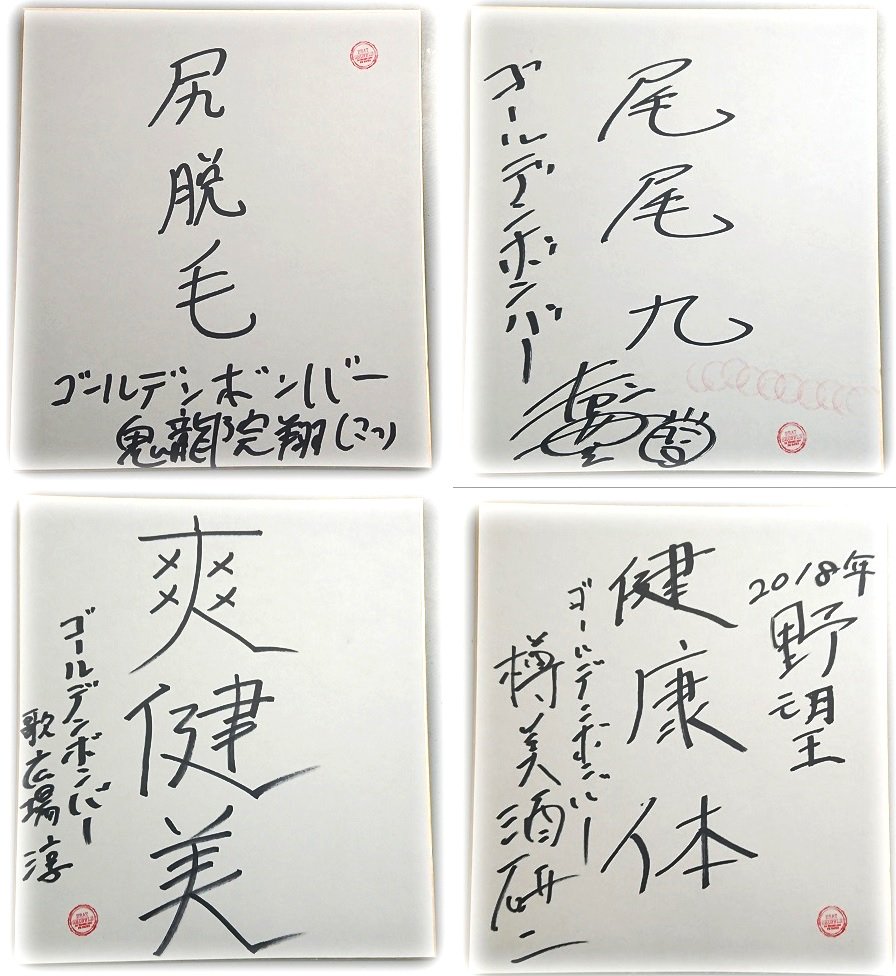 尻脱毛
ゴールデンボンバー
鬼龍院翔(こつ)
尾尾九
ゴールデンボンバー
爽健美
ゴールデンボンバー
歌広場淳
2018年
野望
健康体
ゴールデンボンバー
樽美酒研二